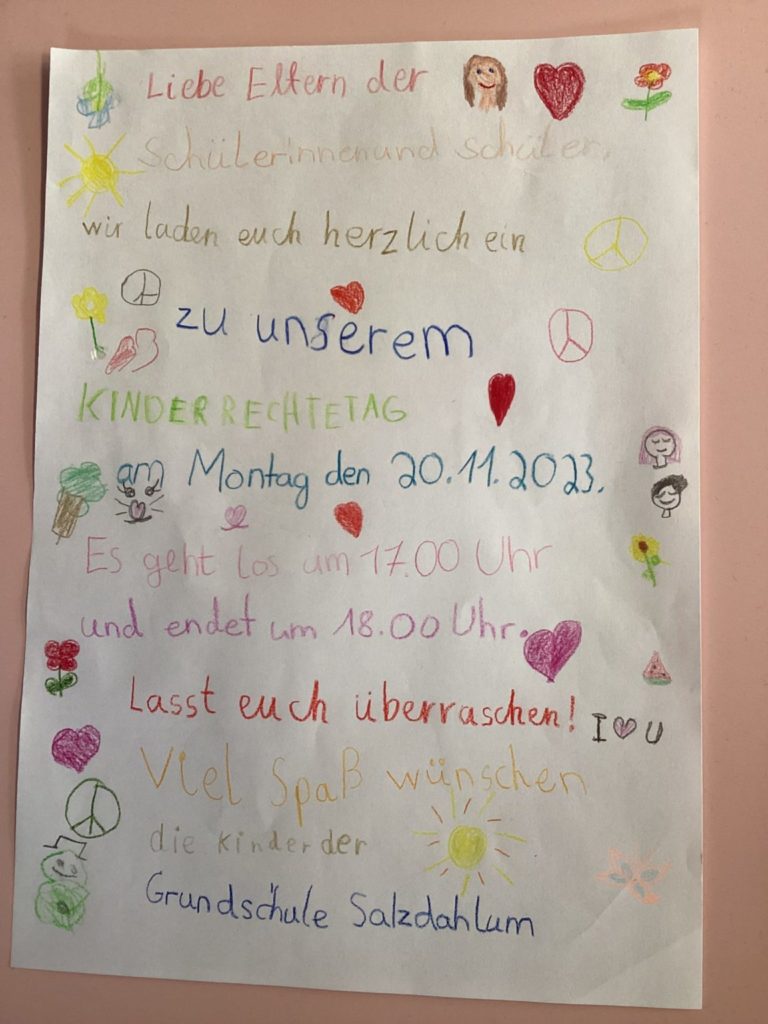 Liebe Eltern der
Schülerinnen und Schüler,
wir laden euch herzlich ein
zu unserem
KINDERRECHTETAG
am Montag den 20.11.2023.
Es geht los um 17.00 Uhr
und endet um 18.00 Uhr.
Lasst euch überraschen!
I ♥ U
Viel Spaß wünschen
die Kinder der
Grundschule Salzdahlum